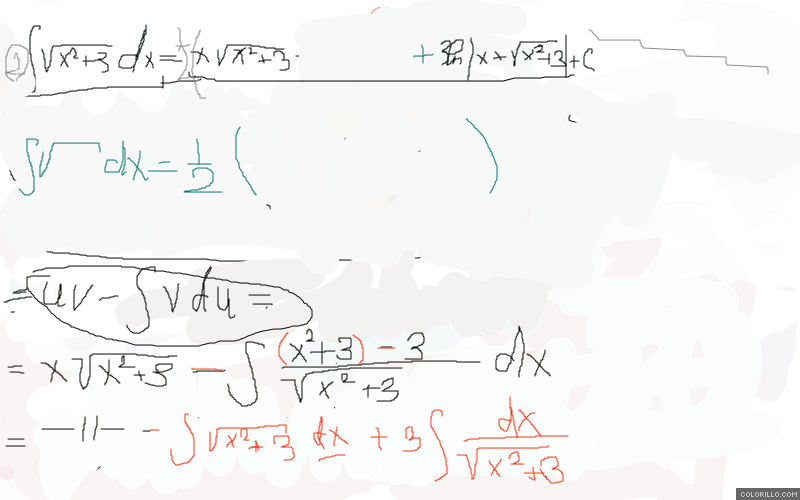 ∫√x²+3 dx = x√x²+3 + 3 ln|x+√x²+3|+C
∫√ dx = 1/2 ( )
= uv - ∫ v du =
= x√x²+3 - ∫ (x²+3) - 3 / √x²+3 dx
= —11— - ∫√x²+3 dx + 3∫ dx / √x²+3
COLORILLO.COM